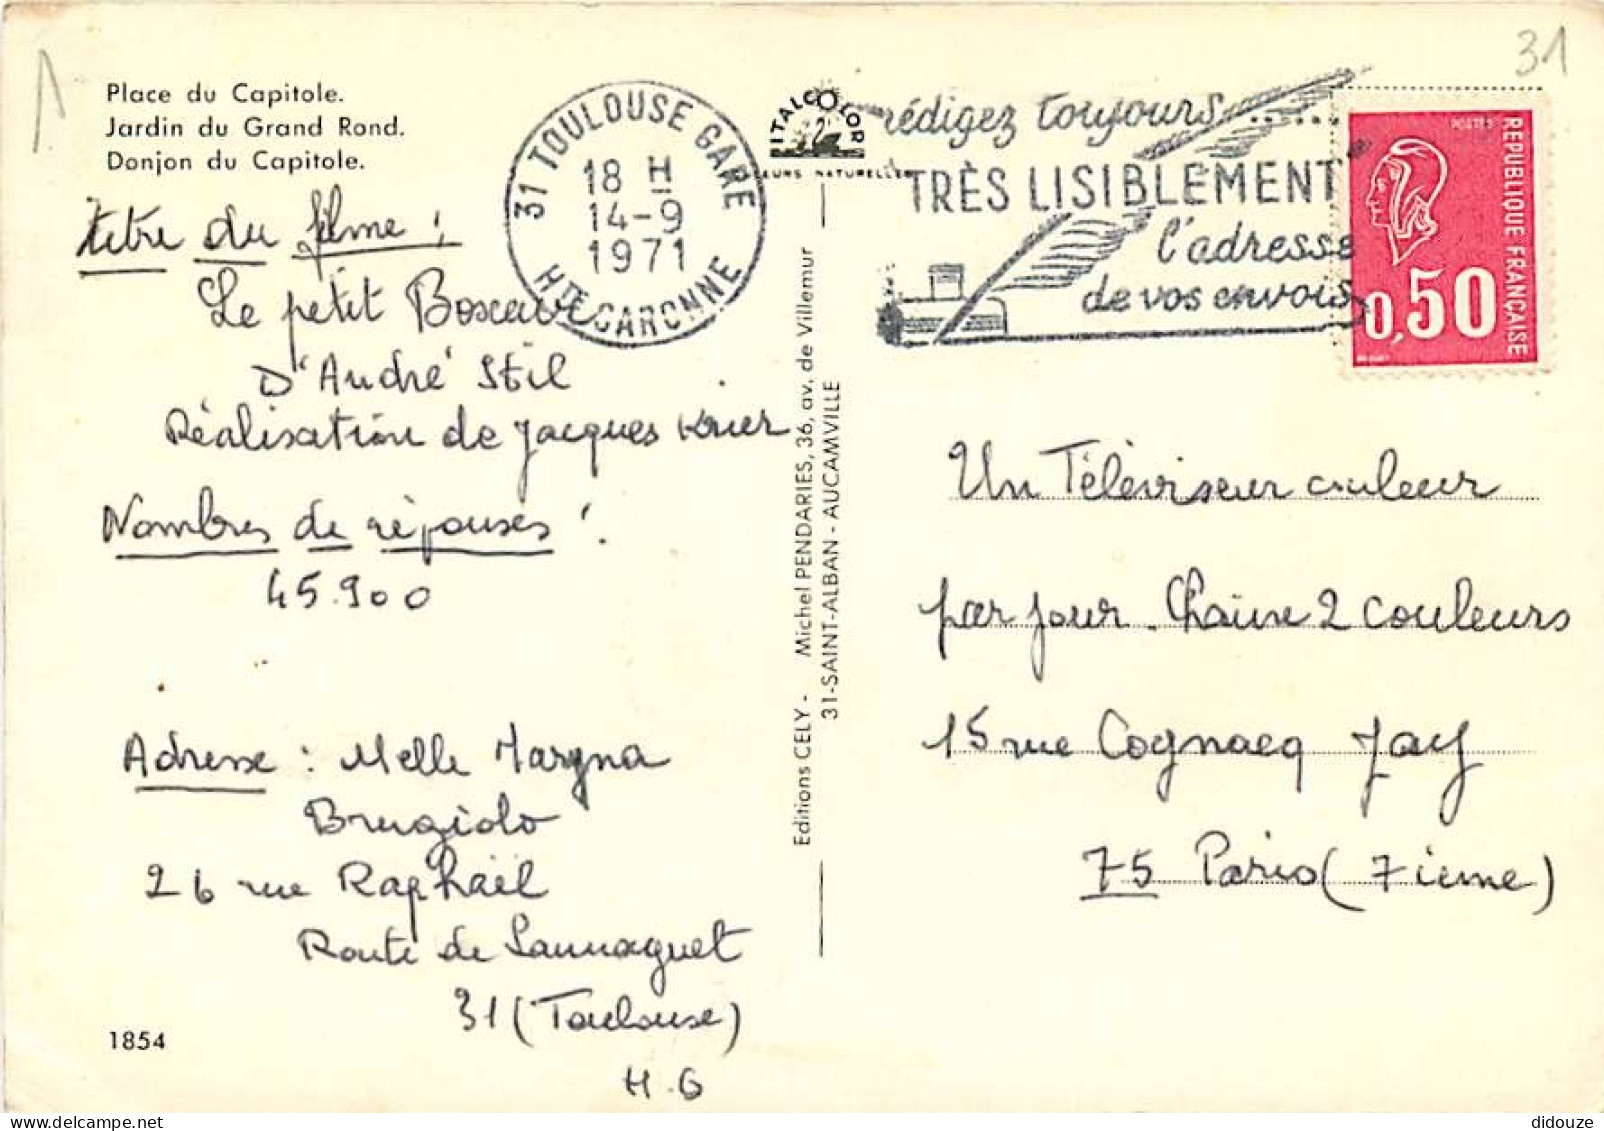 31
Place du Capitole.
Jardin du Grand Rond.
Donjon du Capitole.
31 TOULOUSE GARE
18 H
14-9
1971
HTE GARONNE
ITALCOLOR
EURS NATURELLES
rédigez toujours
TRÈS LISIBLEMENT
l'adresse
de vos envois
POSTES
REPUBLIQUE FRANÇAISE
0,50
titre du filme :
Le petit Boxeur
D'André Stil
Réalisation de Jacques Krier
Nombres de réponses :
45.900
Adresse : Melle Maryna
Brugiolo
26 rue Raphaël
Route de Launaguet
31 (Toulouse)
H.G
1854
Editions CELY - Michel PENDARIES, 36, av. de Villemur
31-SAINT-ALBAN - AUCAMVILLE
Un Téléviseur couleur
par jour. Chaine 2 couleurs
15 rue Cognacq Jay
75 Paris (7ieme)
didouze